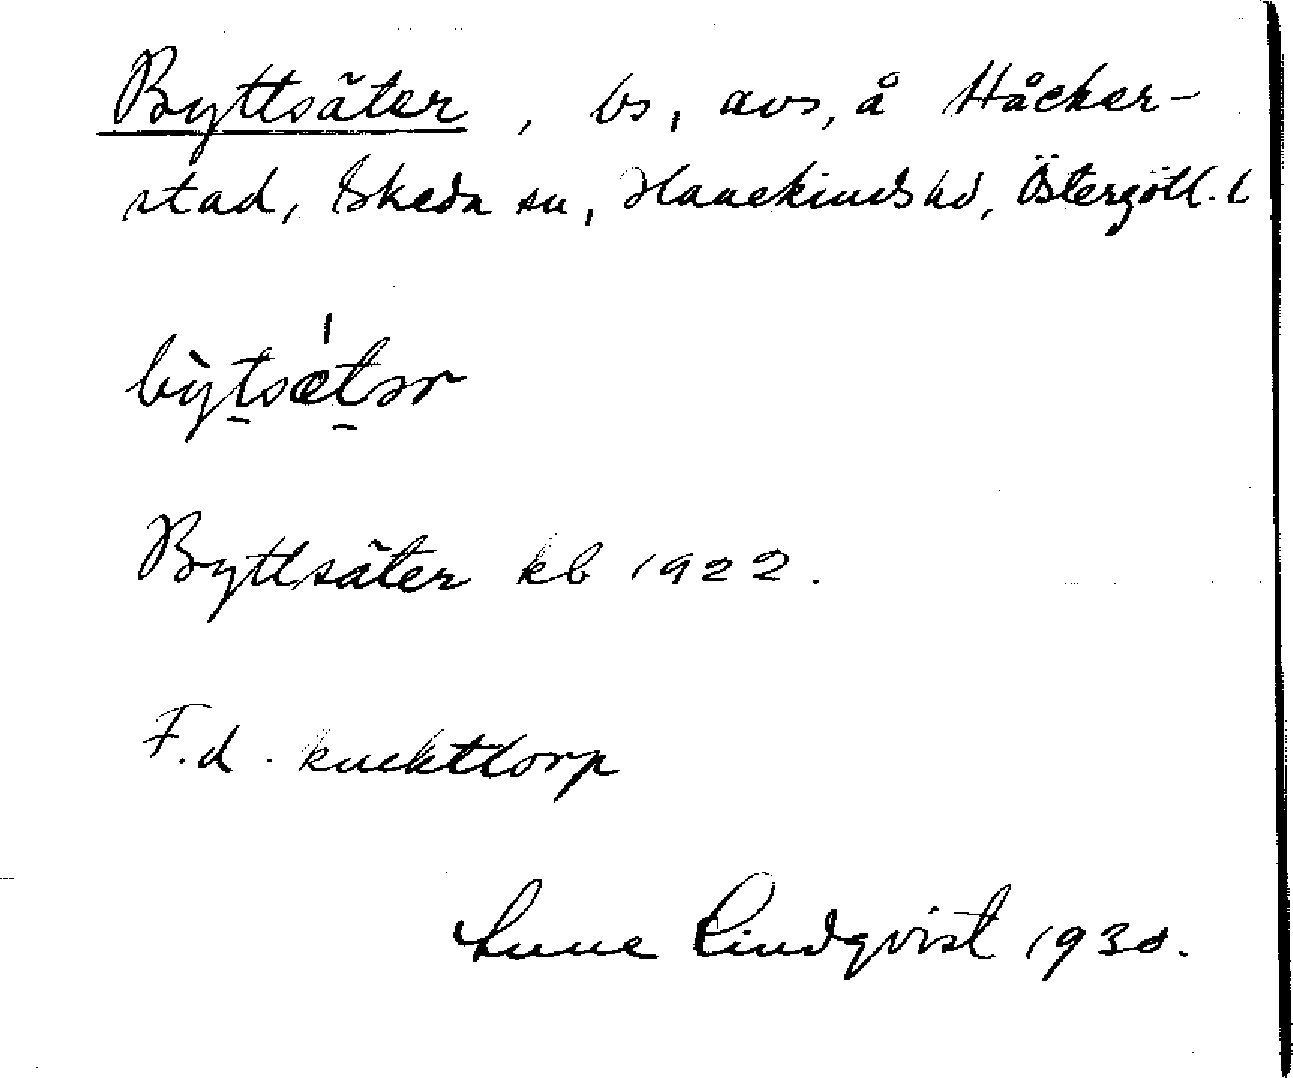 Byttsäter, bs, avs, å Håcker-
stad, Skeda sn, Hanekinds hd, Östergötl. l
bỳt̠sǽt̠ər
Byttsäter kb 1922.
F.d. knekttorp
Sune Lindqvist 1930.